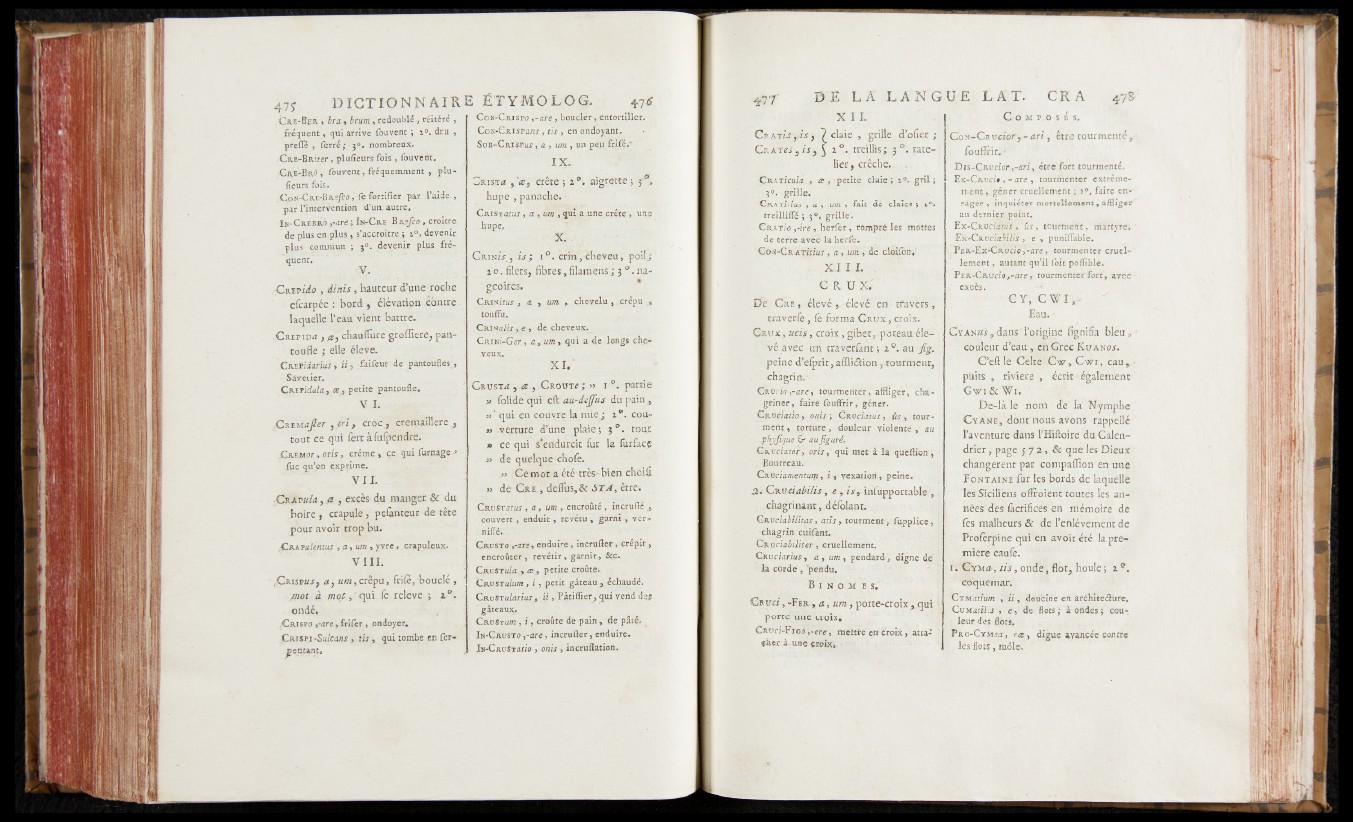 475 DICTIONNAIRE ÉTYMOLOG. 476
CRE-BER, bra, brum, redoublé, réitéré,
fréquent, qui arrive ſouvent ; 2°. dru,
preſſé, ſerré ; 3°. nombreux.
CRE-BRiter, pluſieurs fois, ſouvent.
CRE-BRò, ſouvent, fréquemment, plu-
ſieurs fois.
CON-CRE-BReſco, ſe fortifier par l'aide,
par l'intervention d'un autre.
IN-CREBRO,-are ; IN-CRE BReſco, croître
de plus en plus, s'accroître ; 2°. devenir
plus commun ; 3°. devenir plus fré-
quent.
V.
CREPIDO, dinis, hauteur d'une roche
eſcarpée : bord, élévation contre
laquelle l'eau vient battre.
CREPIDA, æ, chauſſure groſſiere, pan-
toufle ; elle éleve.
CREPIDarius, ii, faiſeur de pantoufles,
Savetier.
CREPIDula, æ, petite pantoufle.
VI.
CREMAſter, eri, croc, cremaillere,
tout ce qui ſert à ſuſpendre.
CREMOR, oris, crême, ce qui ſurnage :
ſuc qu'on exprime.
VII.
CRAPula, æ, excès du manger & du
boire, crapule, peſanteur de tête
pour avoir trop bu.
CRAPulentus, a, um, yvre, crapuleux.
VIII.
CRISPUS, a, um, crêpu, friſé, bouclé,
mot à mot, qui ſe releve ; 2°.
ondé.
CRISPO,-are, friſer, ondoyer.
CRISPI-Sulcans, tis, qui tombe en ſer-
pentant.
CON-CRISPO,-are, boucler, entortiller.
CON-CRISPans, tis, en ondoyant.
SUB-CRISPUS, a, um, un peu friſé.
IX.
CRISTA, æ, crête ; 2°. aigrette ; 3°.
hupe, panache.
CRISTatus, a, um, qui a une crête, une
hupe.
X.
CRINis, is ; 1°. crin, cheveu, poil ;
2°. filets, fibres, filamens ; 3°. na-
geoires.
CRINitus, a, um, chevelu, crépu,
touffu.
CRINalis, e, de cheveux.
CRINI-Ger, a, um, qui a de longs che-
veux.
XI.
CRUSTA, æ, CROUTE ; » 1°. partie
» ſolide qui eſt au-deſſus du pain,
» qui en couvre la mie ; 2°. cou-
» verture d'une plaie ; 3°. tout
» ce qui s'endurcit ſur la ſurface
» de quelque choſe.
» Ce mot a été très-bien choiſi
» de CRE, deſſus, & STA, être.
CRUSTatus, a, um, encroûté, incruſté,
couvert, enduit, revêtu, garni, ver-
niſſé.
CRUSTO,-are, enduire, incruſter, crépir,
encroûter, revétir, garnir, &c.
CRUSTula, æ, petite croûte.
CRUSTulum, i, petit gâteau, échaudé.
CRUSTularius, ii, Pâtiſſier, qui vend des
gâteaux.
CRUSTum, i, croûte de pain, de pâté.
IN-CRUSTO,-are, incruſter, enduire.
IN-CRUSTatio, onis, incruſtation.
477 DE LA LANGUE LAT. CRA 478
XII.
CRATis, is, } claie, grille d'oſier ;
CRATes, is, } 2°. treillis ; 3°. rate-
lier, crêche.
CRATicula, æ, petite claie ; 2°. gril ;
3°. grille.
CRATitius, a, um, fait de claies ; 2°.
treilliſſé ; 3°. grille.
CRATIO,-ire, herſer, rompre les mottes
de terre avec la herſe.
CON-CRATitius, a, um, de cloiſon.
XIII.
CRUX.
De CRE, élevé, élevé en travers,
traverſe, ſe forma CRUX, croix.
CRUX, ucis, croix, gibet, poteau éle-
vé avec un traverſant ; 2°. au fig.
peine d'eſprit, affliction, tourment,
chagrin.
CRUCIO,-are, tourmenter, affliger, cha-
griner, faire ſouffrir, géner.
CRUCIatio, onis ; CRUCIatus, ûs, tour-
ment, torture, douleur violente, au
phyſique & au figuré.
CRUCIator, oris, qui met à la queſtion,
Bourreau.
CRUCIamentum, i, vexation, peine.
2. CRUCIabilis, e, is, inſupportable,
chagrinant, déſolant.
CRUCIabilitas, atis, tourment, ſupplice,
chagrin cuiſant.
CRUCIabiliter, cruellement.
CRUCIarius, a, um, pendard, digne de
la corde, pendu.
BINOMES.
CRUCI,-FER, a, um, porte-croix, qui
porte une croix.
CRUCI-FIGO,-ere, mettre en croix, atta-
cher à une croix.
COMPOSÉS.
CON-CRUCIor,-ari, être tourmenté,
ſouffrir.
DIS-CRUCIor,-ari, être fort tourmenté.
EX-CRUCIO,-are, tourmenter extrême-
ment, géner cruellement ; 2°. faire en-
rager, inquiéter mortellement, affliger
au dernier point.
EX-CRUCIatus, ûs, tourment, martyre.
EX-CRUCIabilis, e, puniſſable.
PER-EX-CRUCIO,-are, tourmenter cruel-
lement, autant qu'il ſoit poſſible.
PER-CRUCIO,-are, tourmenter fort, avec
excès.
CY, CWI,
Eau.
CYANUS, dans l'origine ſignifia bleu,
couleur d'eau, en Grec KUANOS.
C'eſt le Celte CW, CWI, eau,
puits, riviere, écrit également
GWI & WI.
De-là le nom de la Nymphe
CYANE, dont nous avons rappellé
l'aventure dans l'Hiſtoire du Calen-
drier, page 572, & que les Dieux
changerent par compaſſion en une
FONTAINE ſur les bords de laquelle
les Siciliens offroient toutes les an-
nées des ſacrifices en mémoire de
ſes malheurs & de l'enlèvement de
Proſerpine qui en avoit été la pre-
miere cauſe.
1. CYMA, tis, onde, flot, houle ; 2°.
coquemar.
CYMatium, ii, doucine en architecture.
CUMatilis, e, de flots ; à ondes ; cou-
leur des flots.
PRO-CYMea, eæ, digue avancée contre
les flots, môle.